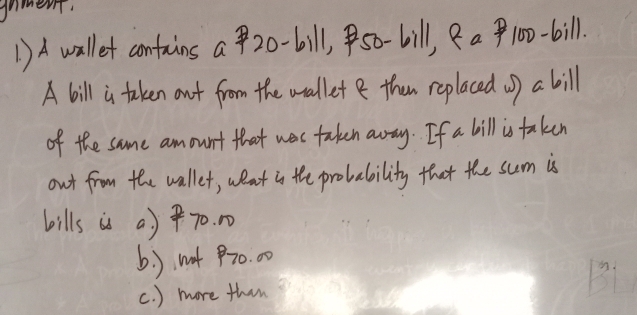 gnment.
1.) A wallet contains a ₱20-bill, ₱50-bill, & a ₱100-bill.
A bill is taken out from the wallet & then replaced w/ a bill
of the same amount that was taken away. If a bill is taken
out from the wallet, what is the probability that the sum is
bills is a.) ₱70.00
b.) not ₱70.00
c.) more than